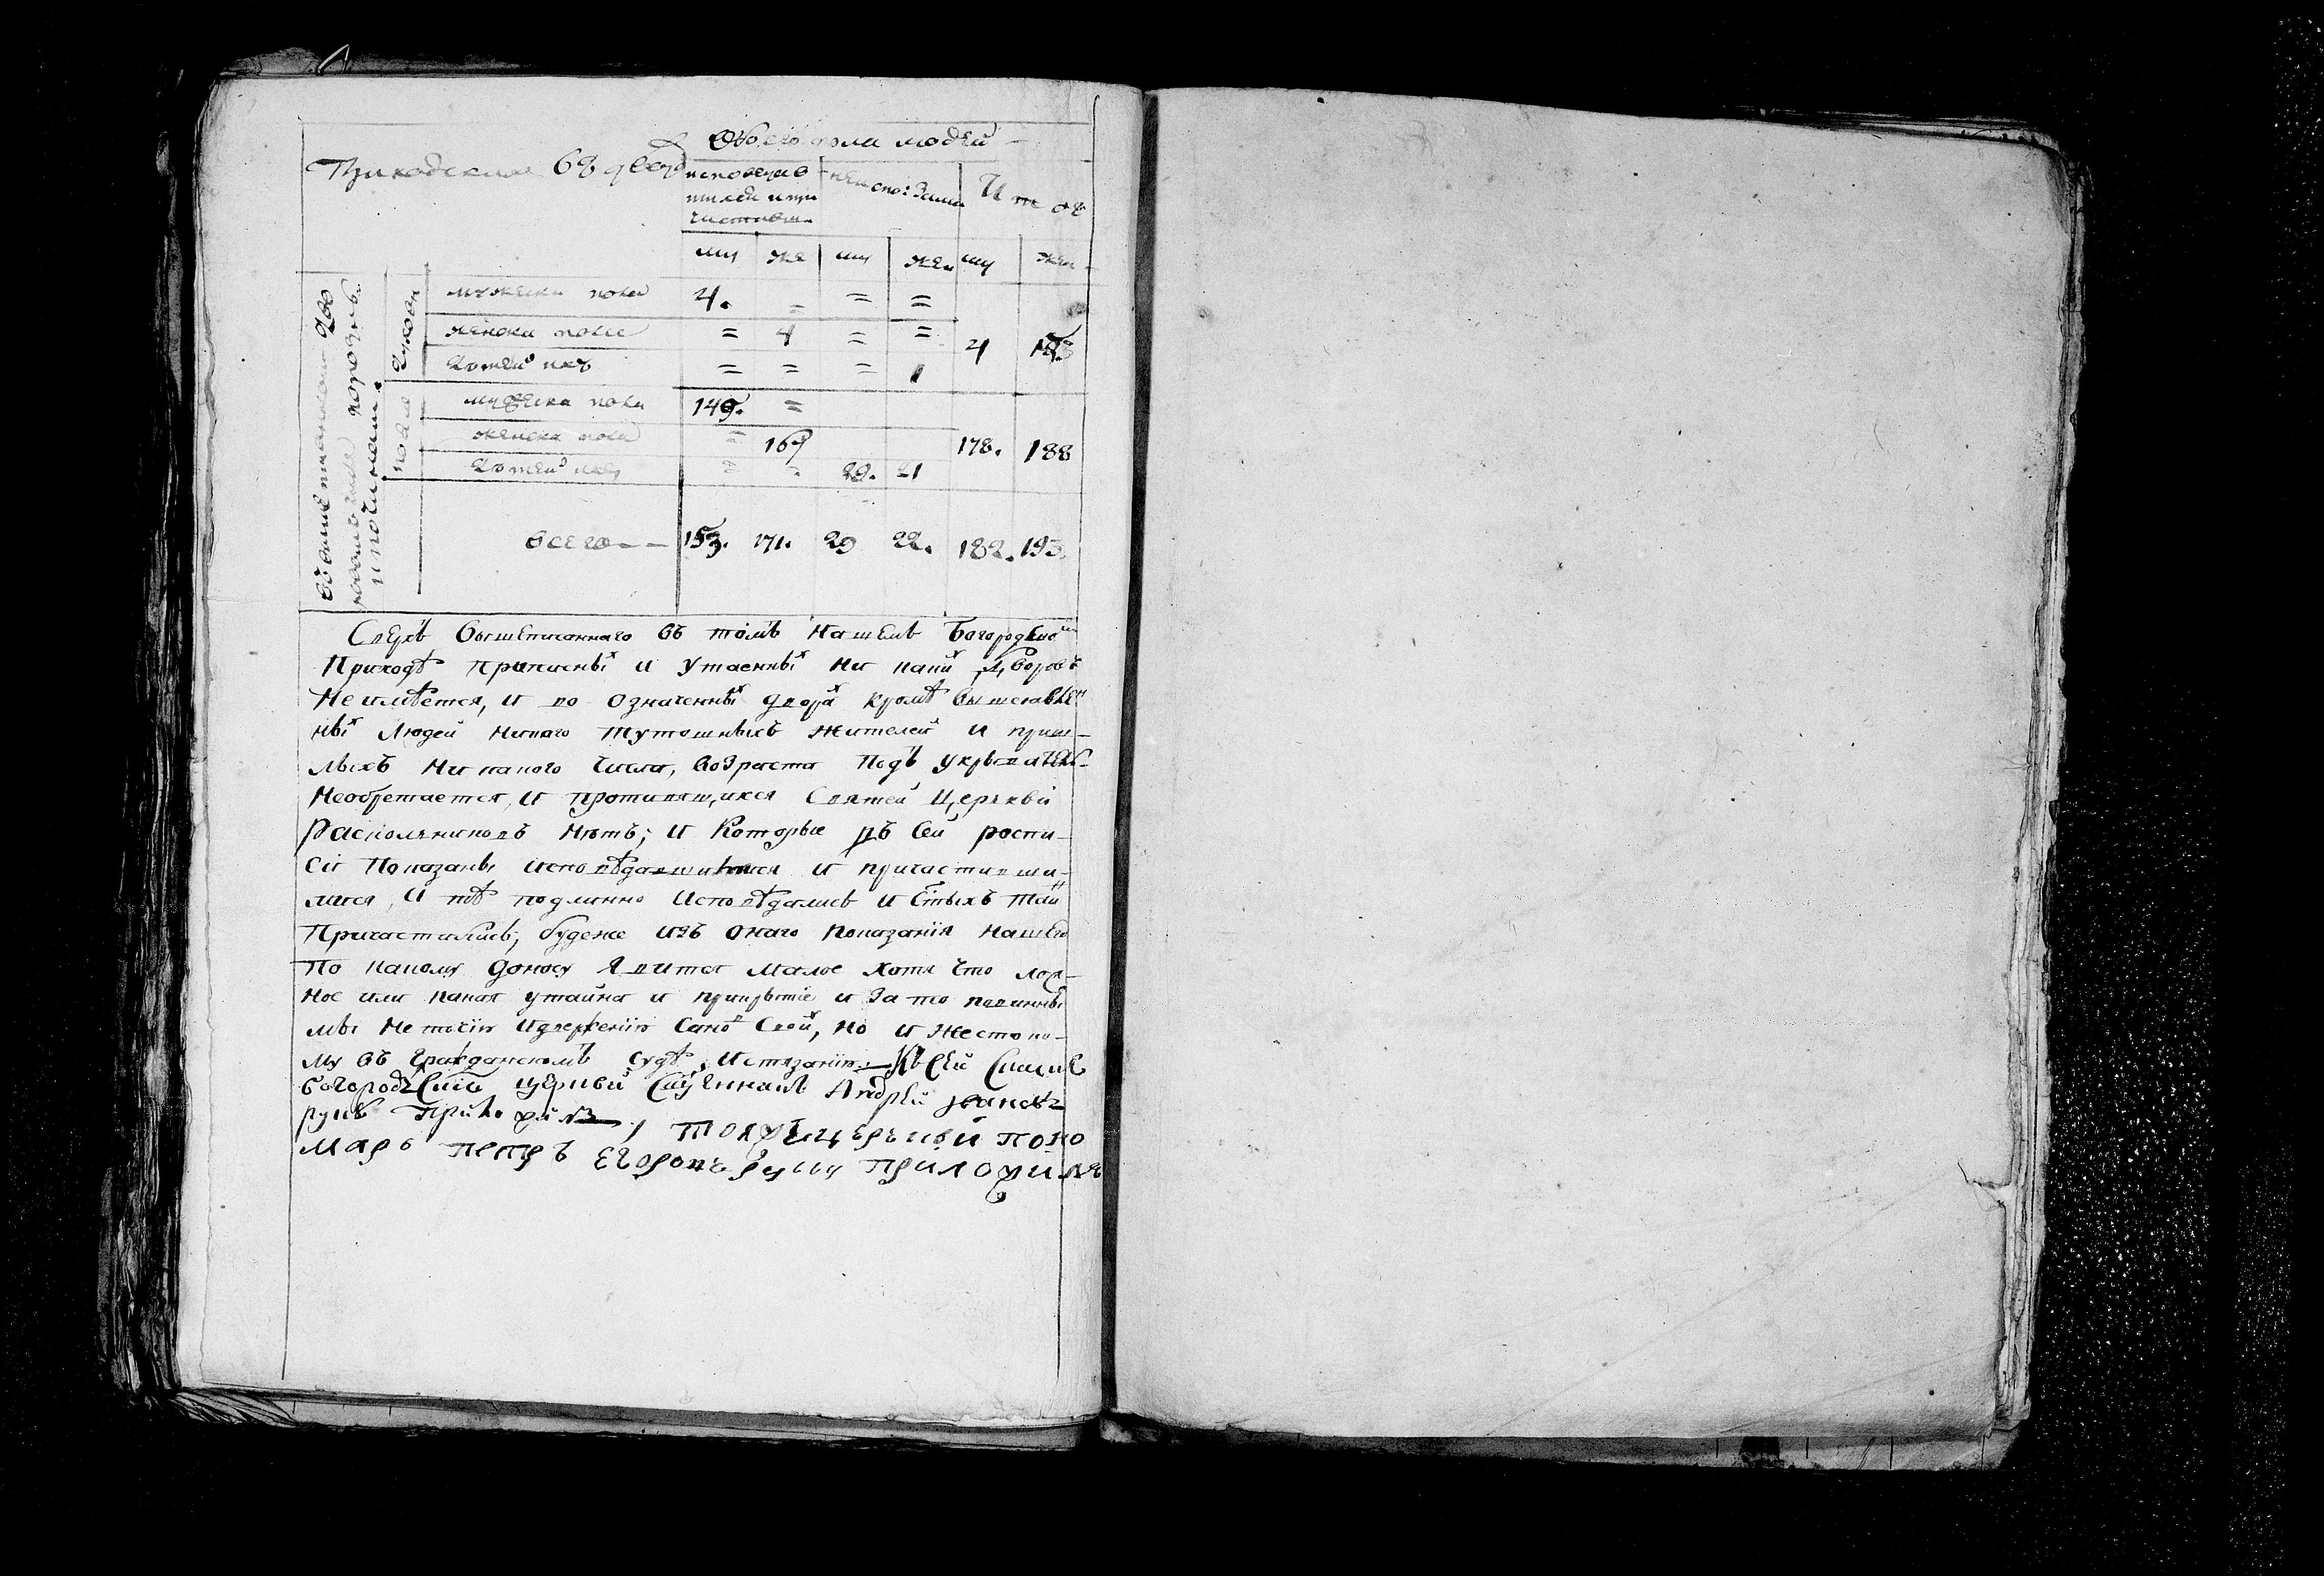 Обоего пола людей
Приходских 68 дворо
исповедав
шихся и при
частивши
неиспо:
Итог
му же му жен му жен
мужеска пола 4. = = =
женска пола = 4 = =
детей их = = = 1
4
мужеска пола 149. =
женска пола = 169
178. 188
детей их 29. 21
всего 153. 171. 29 22. 182. 193.
духовн
Сверхъ вышеписанного въ томъ нашемъ Богородско
Приходѣ приписны и утаенны ни каки дворовъ
неимѣется, и во означенны двора кромѣ вышеявлен
ны людей никого тутошныхъ жителей и приш-
лыхъ ни какого числа, возраста подъ укрывателс
необретается, и противящихся святей церькви
раскольниковъ нѣтъ; и которые въ сей роспи-
си показаны исповѣдавшимися и причастивши-
мися, и тѣ подлинно исповѣдались и стыхъ таи
причастились; будеже изъ оного показания нашего
по какому доносу явится малое хотя что лож-
ное или какая утайка и прикрытие и за то повинны
мы не токмо извержению сано свои, но и жестоко-
му въ гражданскомъ судѣ истязанию. Къ сей
богород церкви священникъ Андрей Иванов
руку приложилъ; тояжъ церькви поно
марь петръ егоровъ руку приложилъ